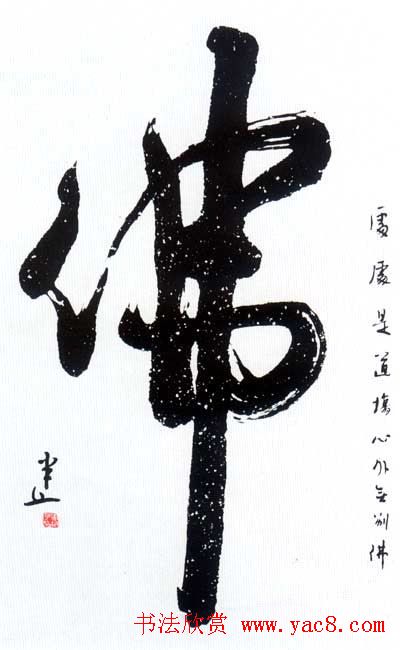 佛
處處是道場心外無别佛
书法欣赏 www.yac8.com